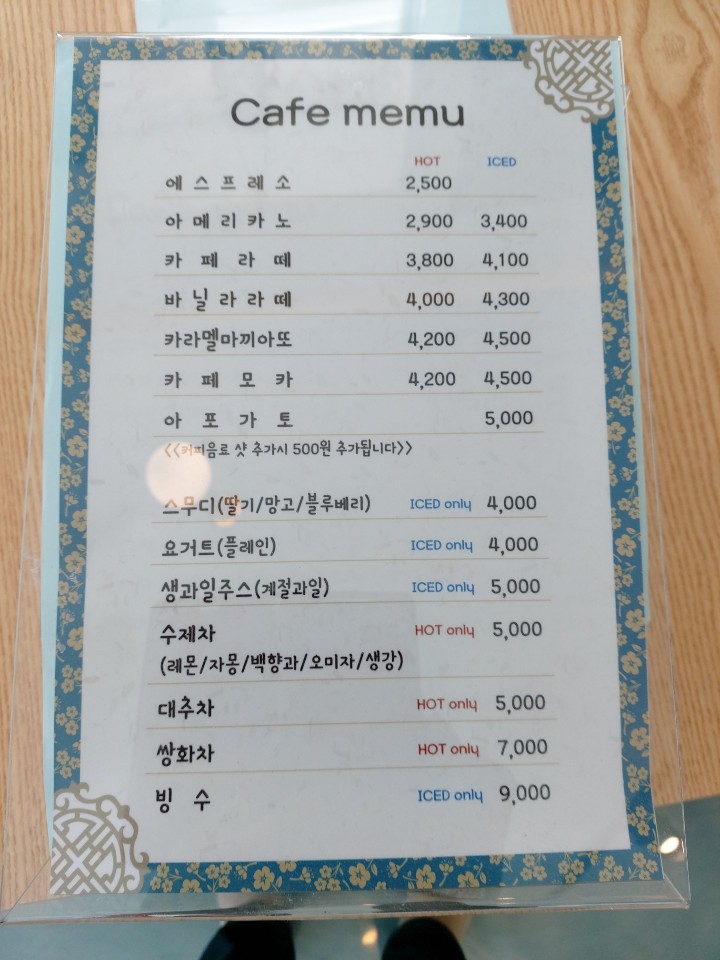 Cafe memu
HOT ICED
에스프레소 2,500
아메리카노 2,900 3,400
카페라떼 3,800 4,100
바닐라라떼 4,000 4,300
카라멜마끼아또 4,200 4,500
카페모카 4,200 4,500
아포가토 5,000
<<커피음료 샷 추가시 500원 추가됩니다>>
스무디(딸기/망고/블루베리) ICED only 4,000
요거트(플레인) ICED only 4,000
생과일주스(계절과일) ICED only 5,000
수제차 HOT only 5,000
(레몬/자몽/백향과/오미자/생강)
대추차 HOT only 5,000
쌍화차 HOT only 7,000
빙수 ICED only 9,000